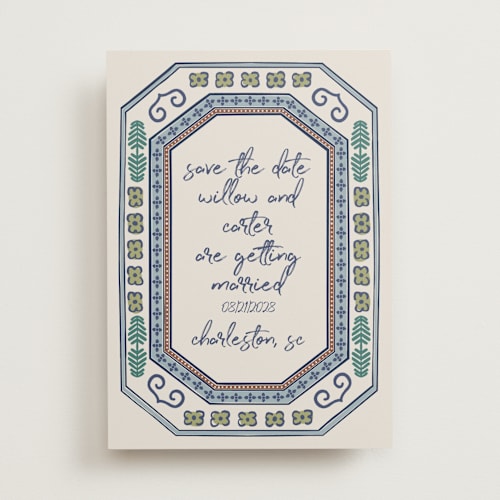 save the date
willow and
carter
are getting
married
03/21/2028
charleston, sc